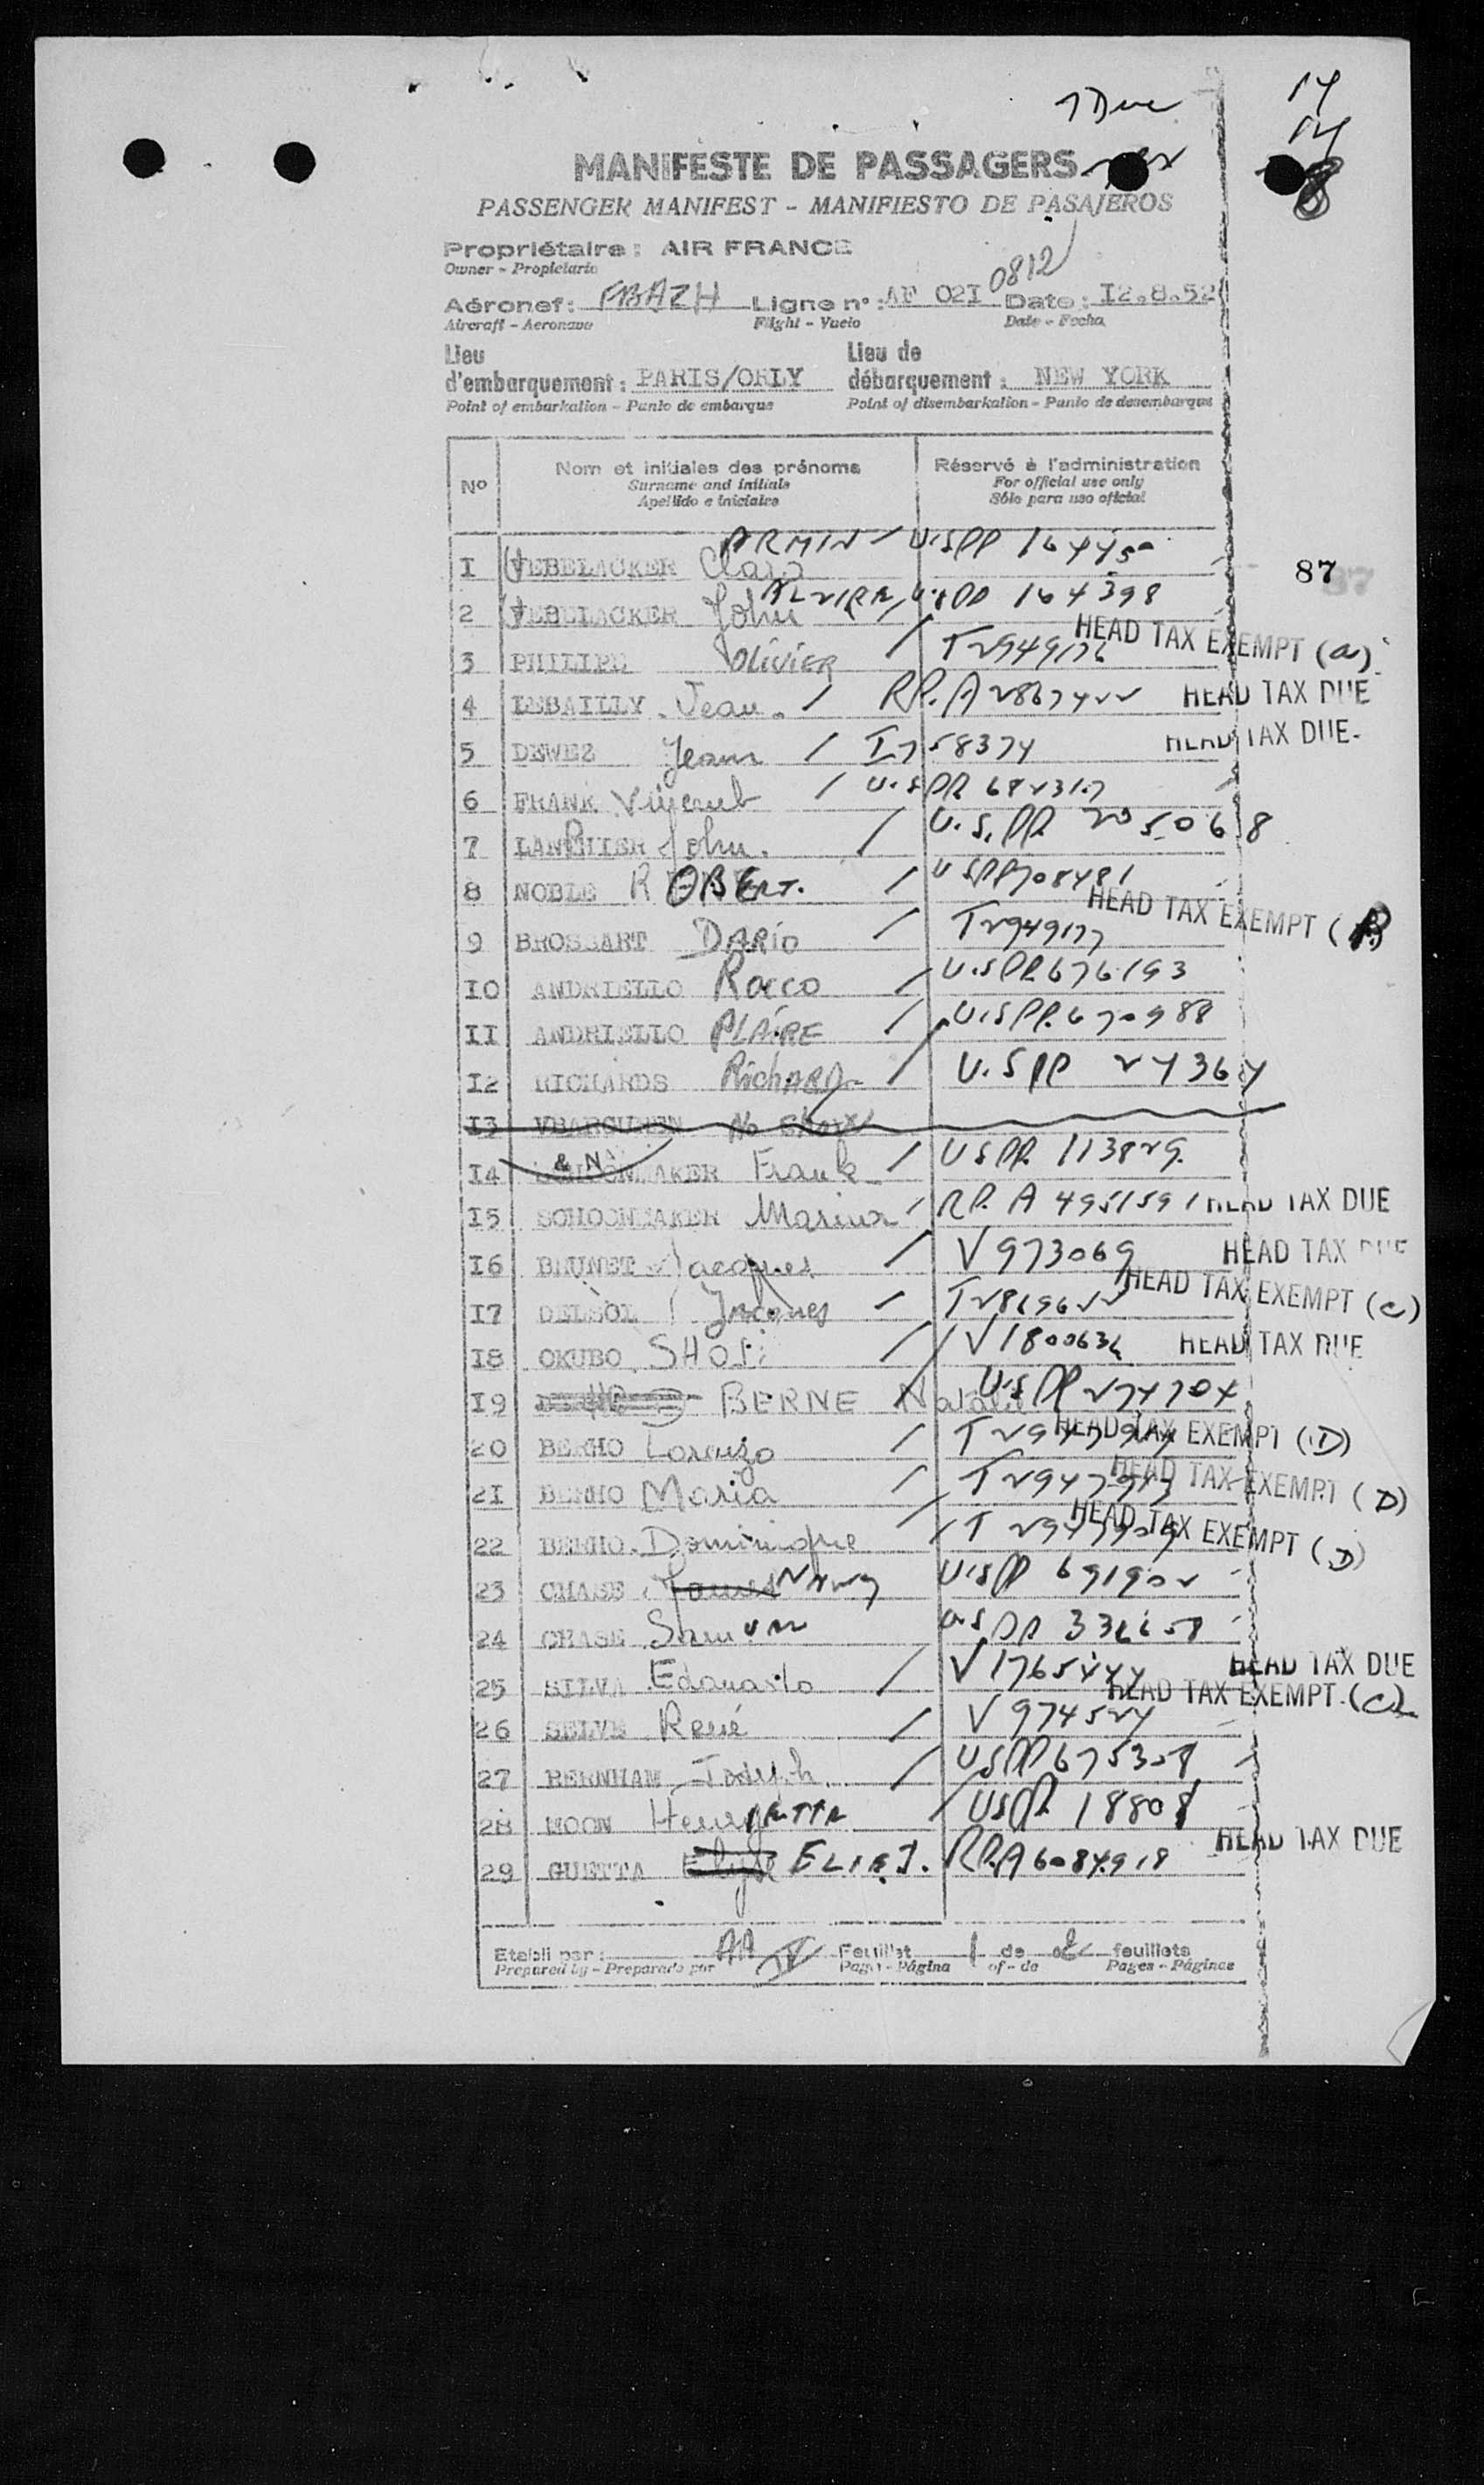 7 Due
14
14
8
MANIFESTE DE PASSAGERS
PASSENGER MANIFEST - MANIFIESTO DE PASAJEROS
Propriétaire : AIR FRANCE
Owner - Propietario
0812
Aéronef : FBAZH Ligne n° : AF 021 Date : I2.8.52
Aircraft - Aeronave Flight - Vuelo Date - Fecha
Lieu d'embarquement : PARIS/ORLY Lieu de débarquement : NEW YORK
Point of embarkation - Punto de embarque Point of disembarkation - Punto de desembarque
No Nom et initiales des prénoms Réservé à l'administration
Surname and initials For official use only
Apellido e iniciales Sólo para uso oficial
I UEBELACKER Clara ARMIN / U.SPP 164450
87
2 UEBELACKER John U.S PP 164398
3 PHILIPE OLIVIER / T2949176 HEAD TAX EXEMPT (a)
4 LEBAILLY Jean / RP. A 2867422 HEAD TAX DUE
5 DEWEZ Jean / I758374 HEAD TAX DUE
6 FRANK Vincent / U.S PP 682317
7 LANPHIER John. / U.S. PP. 205068
8 NOBLE ROBERT. / U SPP708481
9 BROSSART DARIO / T2949177 HEAD TAX EXEMPT (B)
IO ANDRIELLO Rocco / U.S PP 676193
II ANDRIELLO CLAIRE / U.S PP. 670988
I2 RICHARDS RichARD / U.S PP 24364
I3 No Show
& N
I4 SCHOONMAKER Frank / U S PP. 113829
I5 SCHOONMAKER Marina / RP. A 4951591 HEAD TAX DUE
I6 BRUNET Jacques / V 973069 HEAD TAX DUE
I7 DELSOL Jacques / T2819622 HEAD TAX EXEMPT (C)
I8 OKUBO SHOJI / V1800636 HEAD TAX DUE
I9 BERNE Natalie / U.S PP 274704
20 BERHO Lorenzo / HEAD TAX EXEMPT (D)
2I BERHO Maria / HEAD TAX EXEMPT (D)
22 BERHO Dominique / HEAD TAX EXEMPT (D)
23 CHASE James NANCY U.S PP 691902
24 CHASE Sam U.S PP
25 SILVA Edouardo / V 1765444 HEAD TAX DUE
26 SELVE René / V 974524 HEAD TAX EXEMPT (C)
27 BERNHAM Joseph / U S PP 675308
28 MOON Henry / US PP. 18808
29 GUETTA Elyse ELIE J. RP.A 6084918 HEAD TAX DUE
Etabli par : AA Feuillet 1 de 2 feuillets
Prepared by - Preparado por Page - Página of - de Pages - Páginas